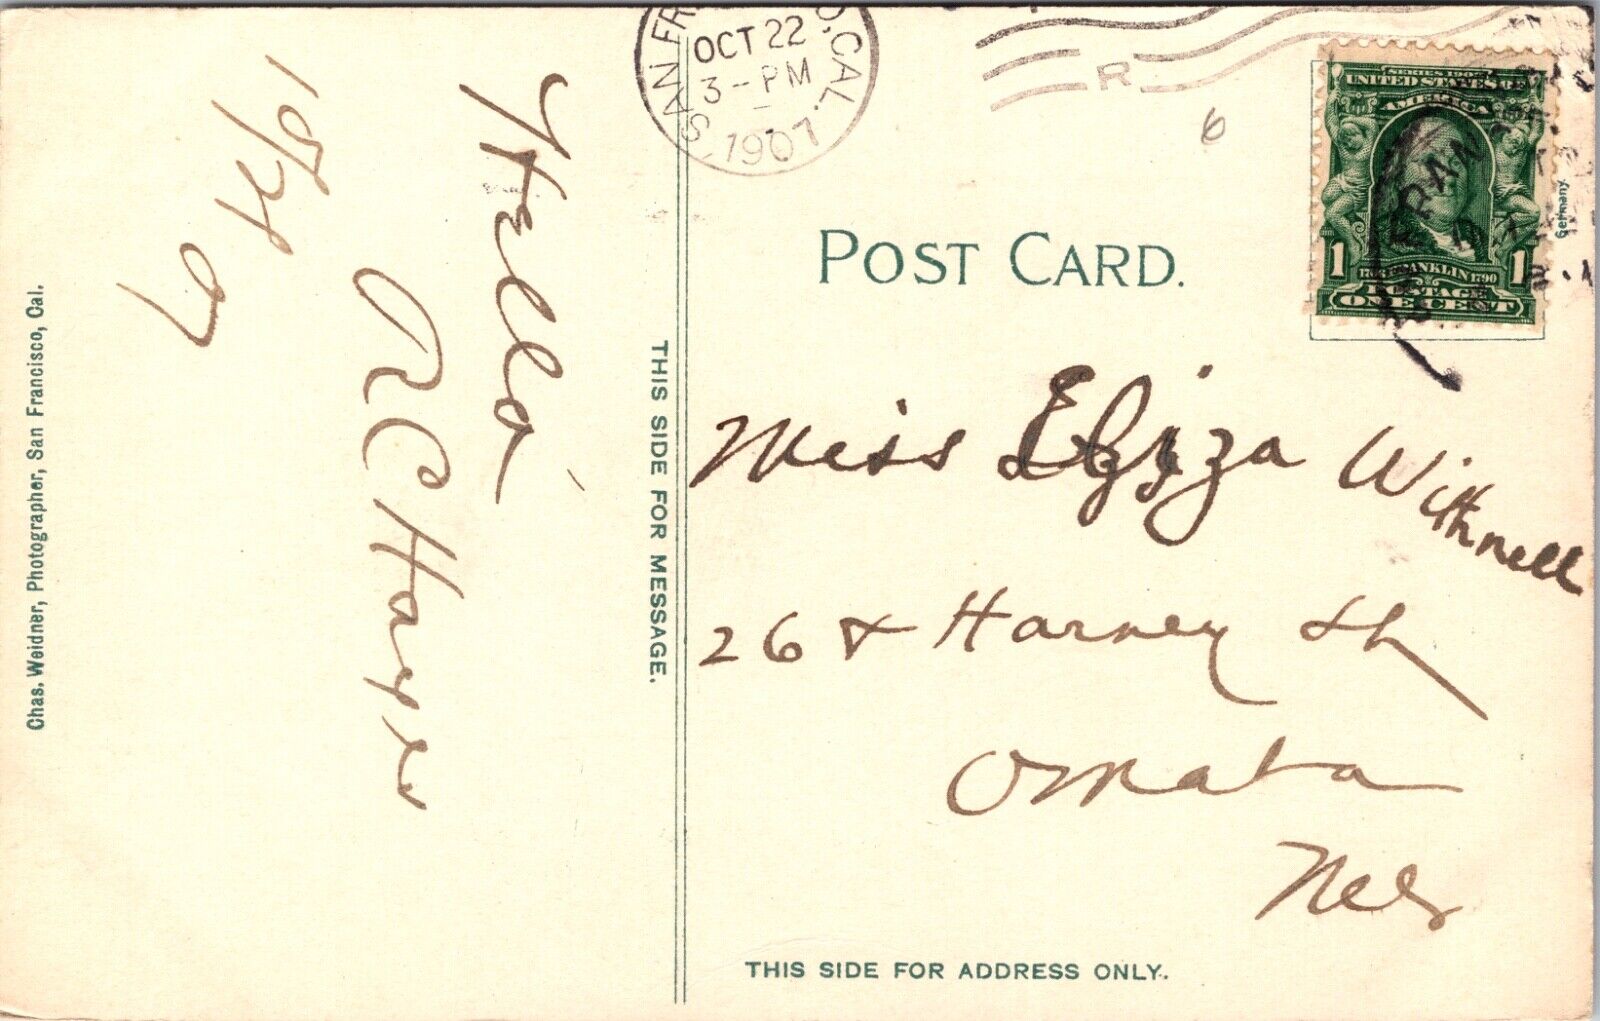 SAN FR O, CAL.
OCT 22
3 - PM
1907
R
6
SERIES 1902
UNITED STATES OF
AMERICA
FRANKLIN 1790
POSTAGE
1 ONE CENT 1
Germany.
POST CARD.
Hello
R C Hayes
10/21 07
Chas. Weidner, Photographer, San Francisco, Cal.
THIS SIDE FOR MESSAGE.
Miss Eliza Withnell
26 & Harney St
Omaha
Neb
THIS SIDE FOR ADDRESS ONLY.